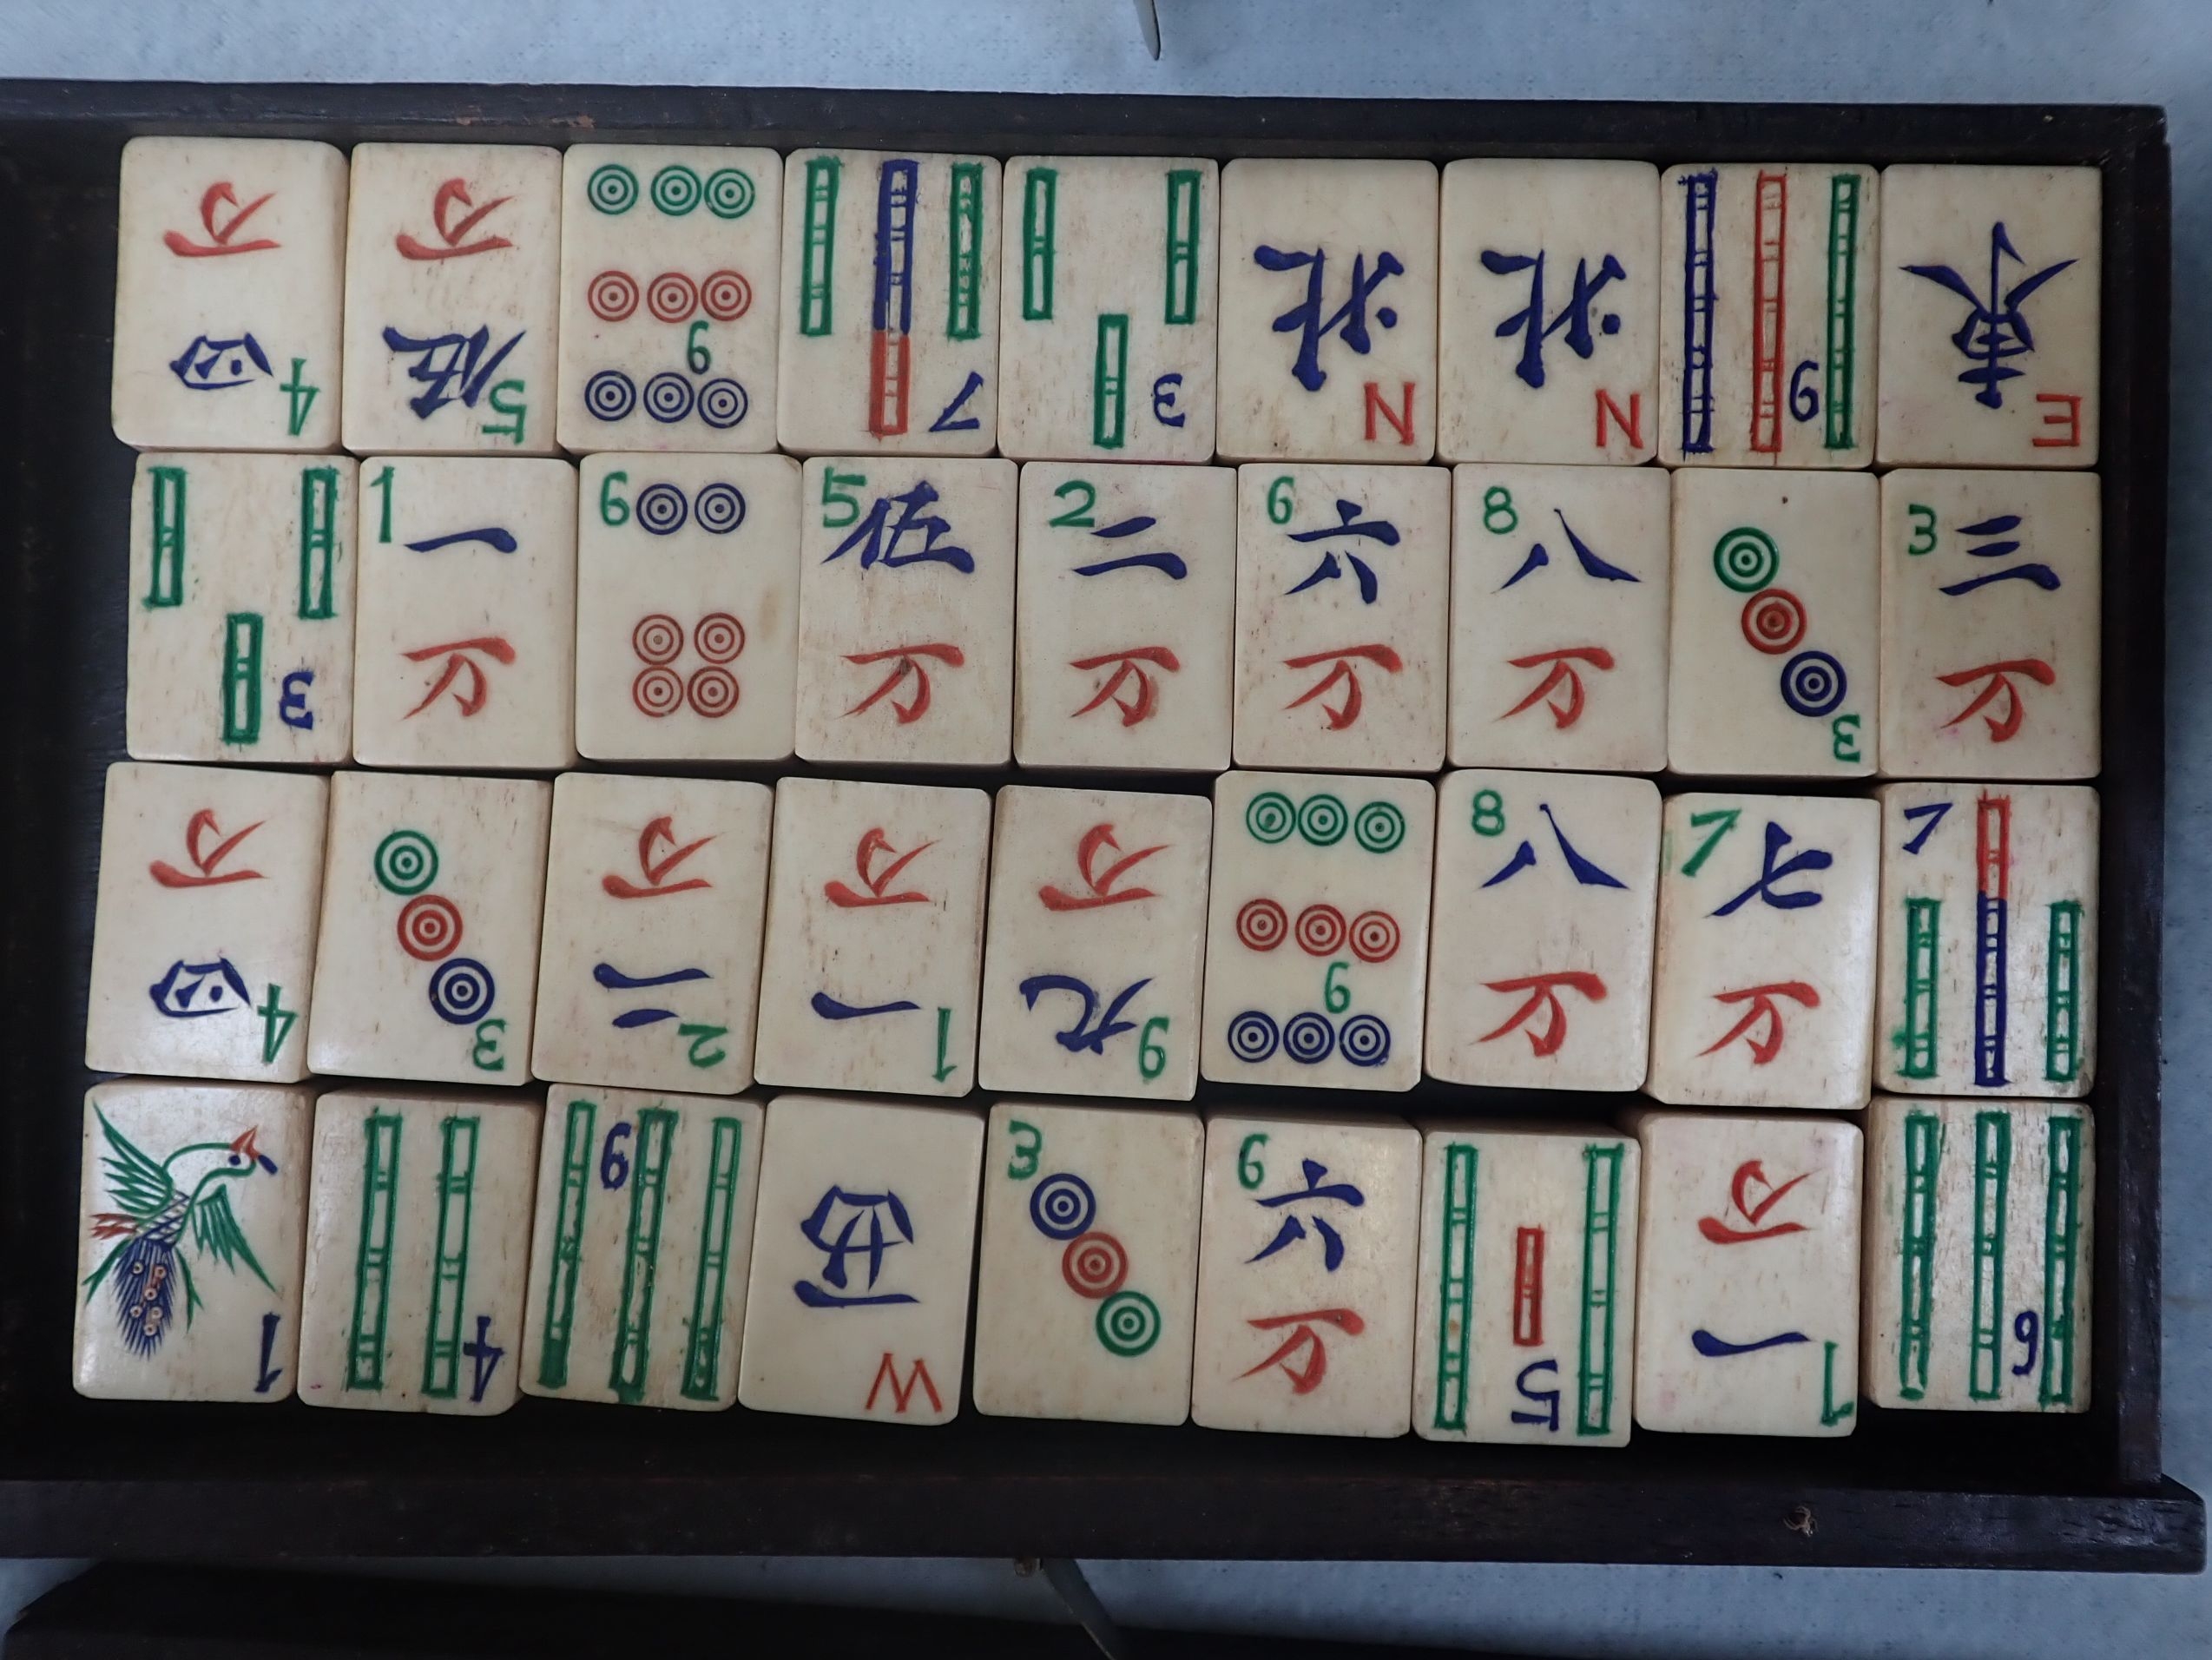 4 四
万
5 伍
万
9
7
3
北
N
北
N
9
東
E
3
1 一
万
6
5 伍
万
2 二
万
6 六
万
8 八
万
3
3 三
万
4 四
万
3
2 二
万
1 一
万
9 九
万
9
8 八
万
7 七
万
7
1
4
9
西
W
3
6 六
万
5
1 一
万
6